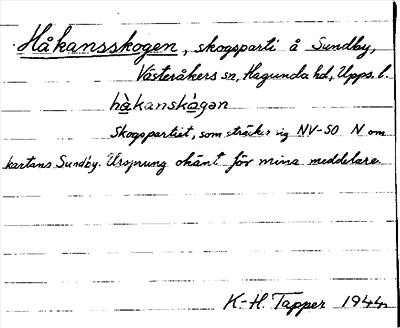 Håkansskogen, skogsparti å Sundby,
Västeråkers sn, Hagunda hd, Upps. l.
hàkanskógən
Skogspartiet, som sträcker sig NV-SO N om
kartans Sundby. Ursprung okänt för mina meddelare.
K-H. Tapper 1944.